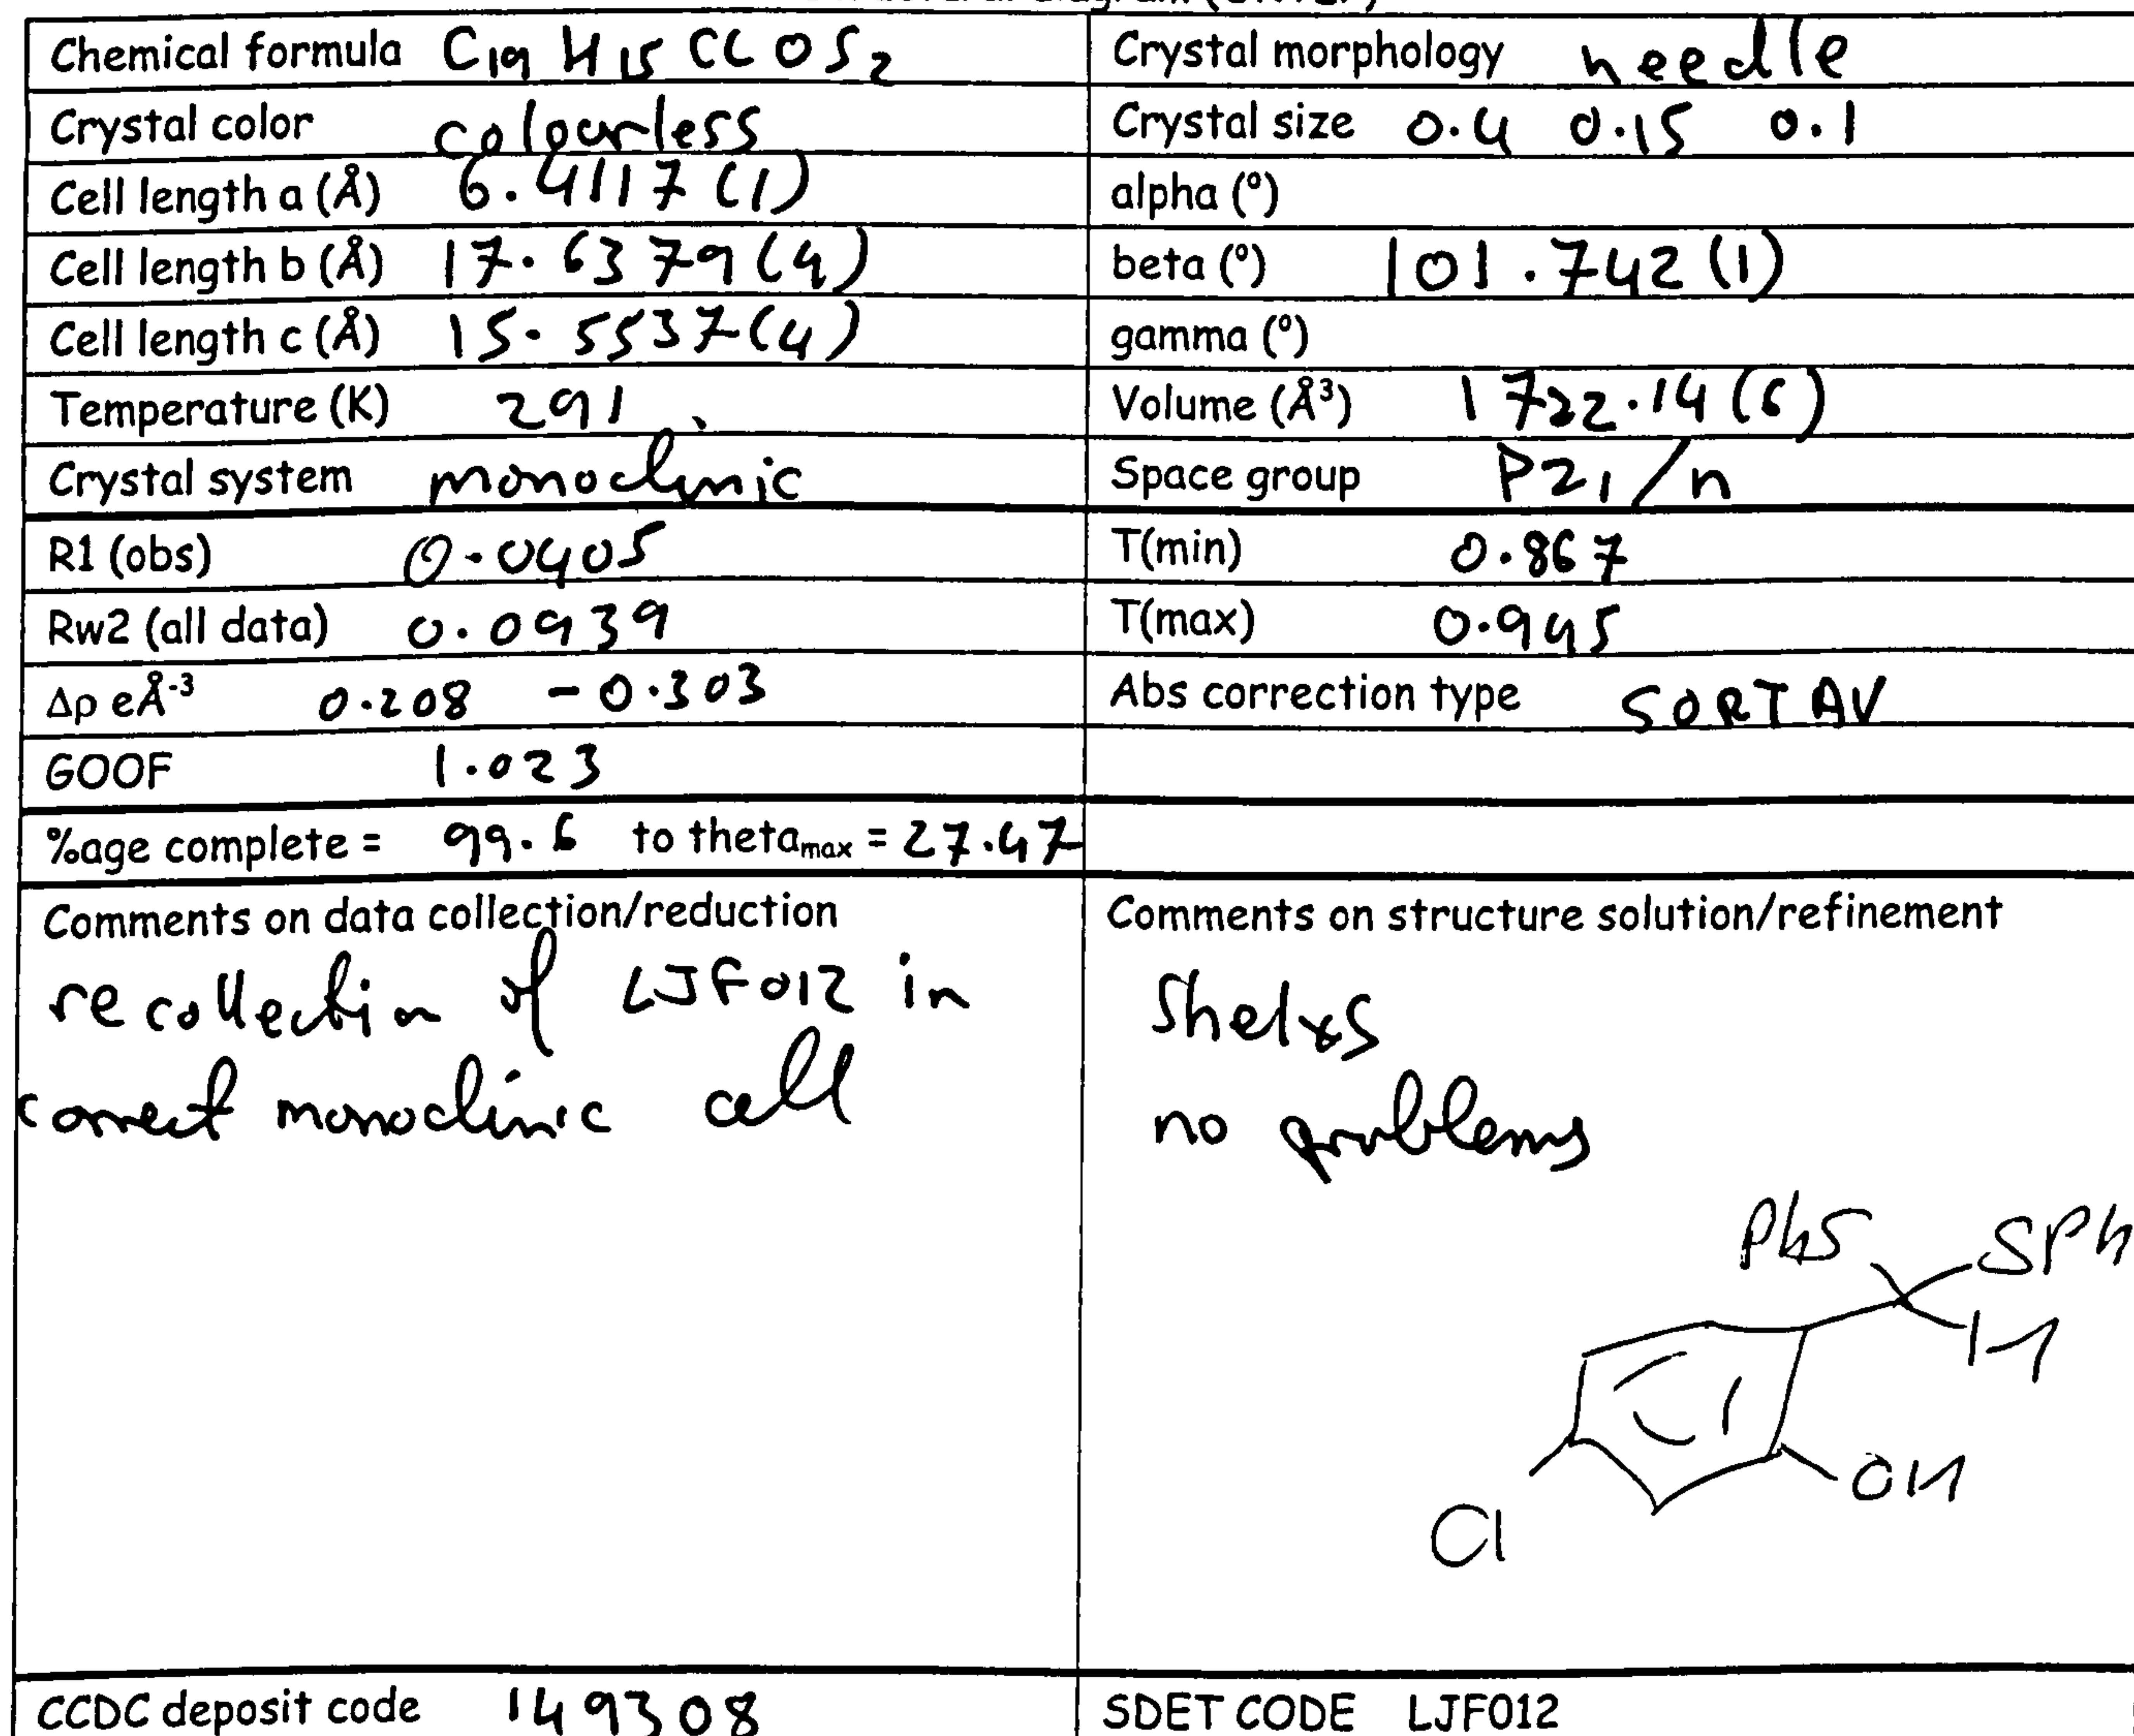 Chemical formula C19 H15 CL O S2
Crystal morphology needle
Crystal color colourless
Crystal size 0.4 0.15 0.1
Cell length a (Å) 6.4117(1)
alpha (°)
Cell length b (Å) 17.6379(4)
beta (°) 101.742(1)
Cell length c (Å) 15.5537(4)
gamma (°)
Temperature (K) 291
Volume (Å³) 1722.14(6)
Crystal system monoclinic
Space group P21/n
R1 (obs) 0.0405
T(min) 0.867
Rw2 (all data) 0.0939
T(max) 0.945
Δρ eÅ⁻³ 0.208 -0.303
Abs correction type SORTAV
GOOF 1.023
%age complete = 99.6 to thetamax = 27.47
Comments on data collection/reduction
recollection of LJF012 in
correct monoclinic cell
Comments on structure solution/refinement
Shelxs
no problems
PhS SPh
H
OH
Cl
CCDC deposit code 149308
SDET CODE LJF012